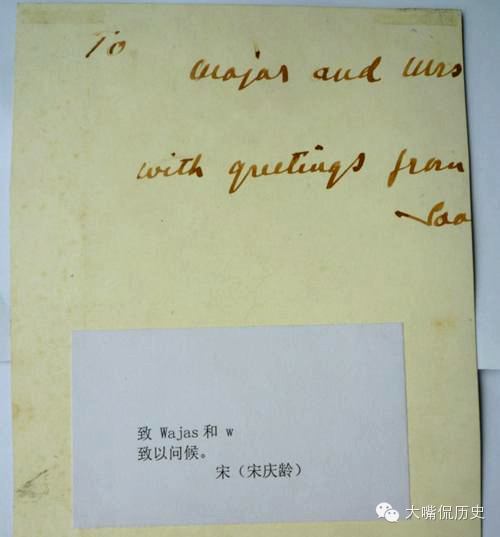 To
Major and Mrs
with greetings from
Soo
致 Wajas 和 w
致以问候。
宋（宋庆龄）
大嘴侃历史